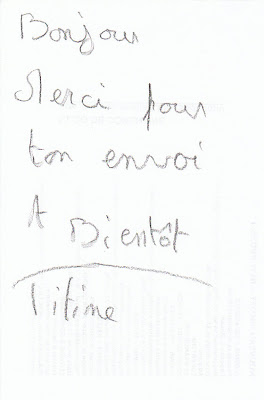 Bonjour
Merci pour
ton envoi
A Bientôt
Titine